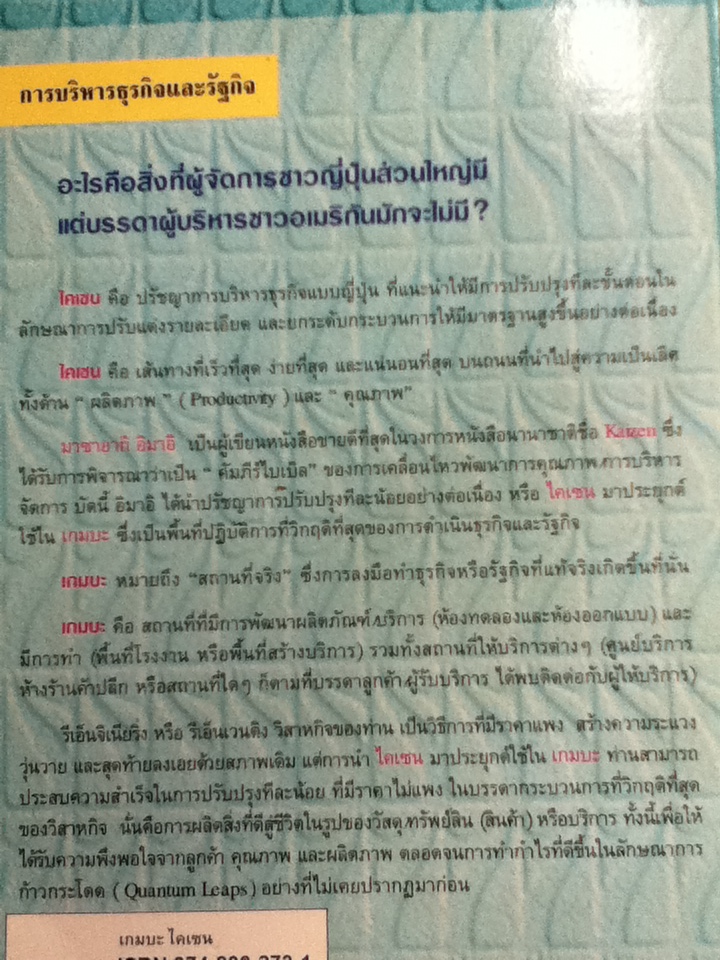 การบริหารธุรกิจและรัฐกิจ
อะไรคือสิ่งที่ผู้จัดการชาวญี่ปุ่นส่วนใหญ่มี
แต่บรรดาผู้บริหารชาวอเมริกันมักจะไม่มี ?
ไคเซน คือ ปรัชญาการบริหารธุรกิจแบบญี่ปุ่น ที่แนะนำให้มีการปรับปรุงทีละขั้นตอนใน
ลักษณาการปรับแต่งรายละเอียด และยกระดับกระบวนการให้มีมาตรฐานสูงขึ้นอย่างต่อเนื่อง
ไคเซน คือ เส้นทางที่เร็วที่สุด ง่ายที่สุด และแน่นอนที่สุด บนถนนที่นำไปสู่ความเป็นเลิศ
ทั้งด้าน “ ผลิตภาพ ” ( Productivity ) และ “ คุณภาพ”
มาซาอากิ อิมาอิ เป็นผู้เขียนหนังสือขายดีที่สุดในวงการหนังสือนานาชาติชื่อ Kaizen ซึ่ง
ได้รับการพิจารณาว่าเป็น “ คัมภีร์ไบเบิล” ของการเคลื่อนไหวพัฒนาการคุณภาพ/การบริหาร
จัดการ บัดนี้ อิมาอิ ได้นำปรัชญาการปรับปรุงทีละน้อยอย่างต่อเนื่อง หรือ ไคเซน มาประยุกต์
ใช้ใน เกมบะ ซึ่งเป็นพื้นที่ปฏิบัติการที่วิกฤติที่สุดของการดำเนินธุรกิจและรัฐกิจ
เกมบะ หมายถึง “สถานที่จริง” ซึ่งการลงมือทำธุรกิจหรือรัฐกิจที่แท้จริงเกิดขึ้นที่นั่น
เกมบะ คือ สถานที่ที่มีการพัฒนาผลิตภัณฑ์/บริการ (ห้องทดลองและห้องออกแบบ) และ
มีการทำ (พื้นที่โรงงาน หรือพื้นที่สร้างบริการ) รวมทั้งสถานที่ให้บริการต่างๆ (ศูนย์บริการ
ห้างร้านค้าปลีก หรือสถานที่ใดๆ ก็ตามที่บรรดาลูกค้า/ผู้รับบริการ ได้พบติดต่อกับผู้ให้บริการ)
รีเอ็นจิเนียริง หรือ รีเอ็นเวนติง วิสาหกิจของท่าน เป็นวิธีการที่มีราคาแพง สร้างความระแวง
วุ่นวาย และสุดท้ายลงเอยด้วยสภาพเดิม แต่การนำ ไคเซน มาประยุกต์ใช้ใน เกมบะ ท่านสามารถ
ประสบความสำเร็จในการปรับปรุงทีละน้อย ที่มีราคาไม่แพง ในบรรดากระบวนการที่วิกฤติที่สุด
ของวิสาหกิจ นั่นคือการผลิตสิ่งที่ดีสู่ชีวิตในรูปของวัสดุ/ทรัพย์สิน (สินค้า) หรือบริการ ทั้งนี้เพื่อให้
ได้รับความพึงพอใจจากลูกค้า คุณภาพ และผลิตภาพ ตลอดจนการทำกำไรที่ดีขึ้นในลักษณาการ
ก้าวกระโดด ( Quantum Leaps ) อย่างที่ไม่เคยปรากฏมาก่อน
เกมบะ ไคเซน